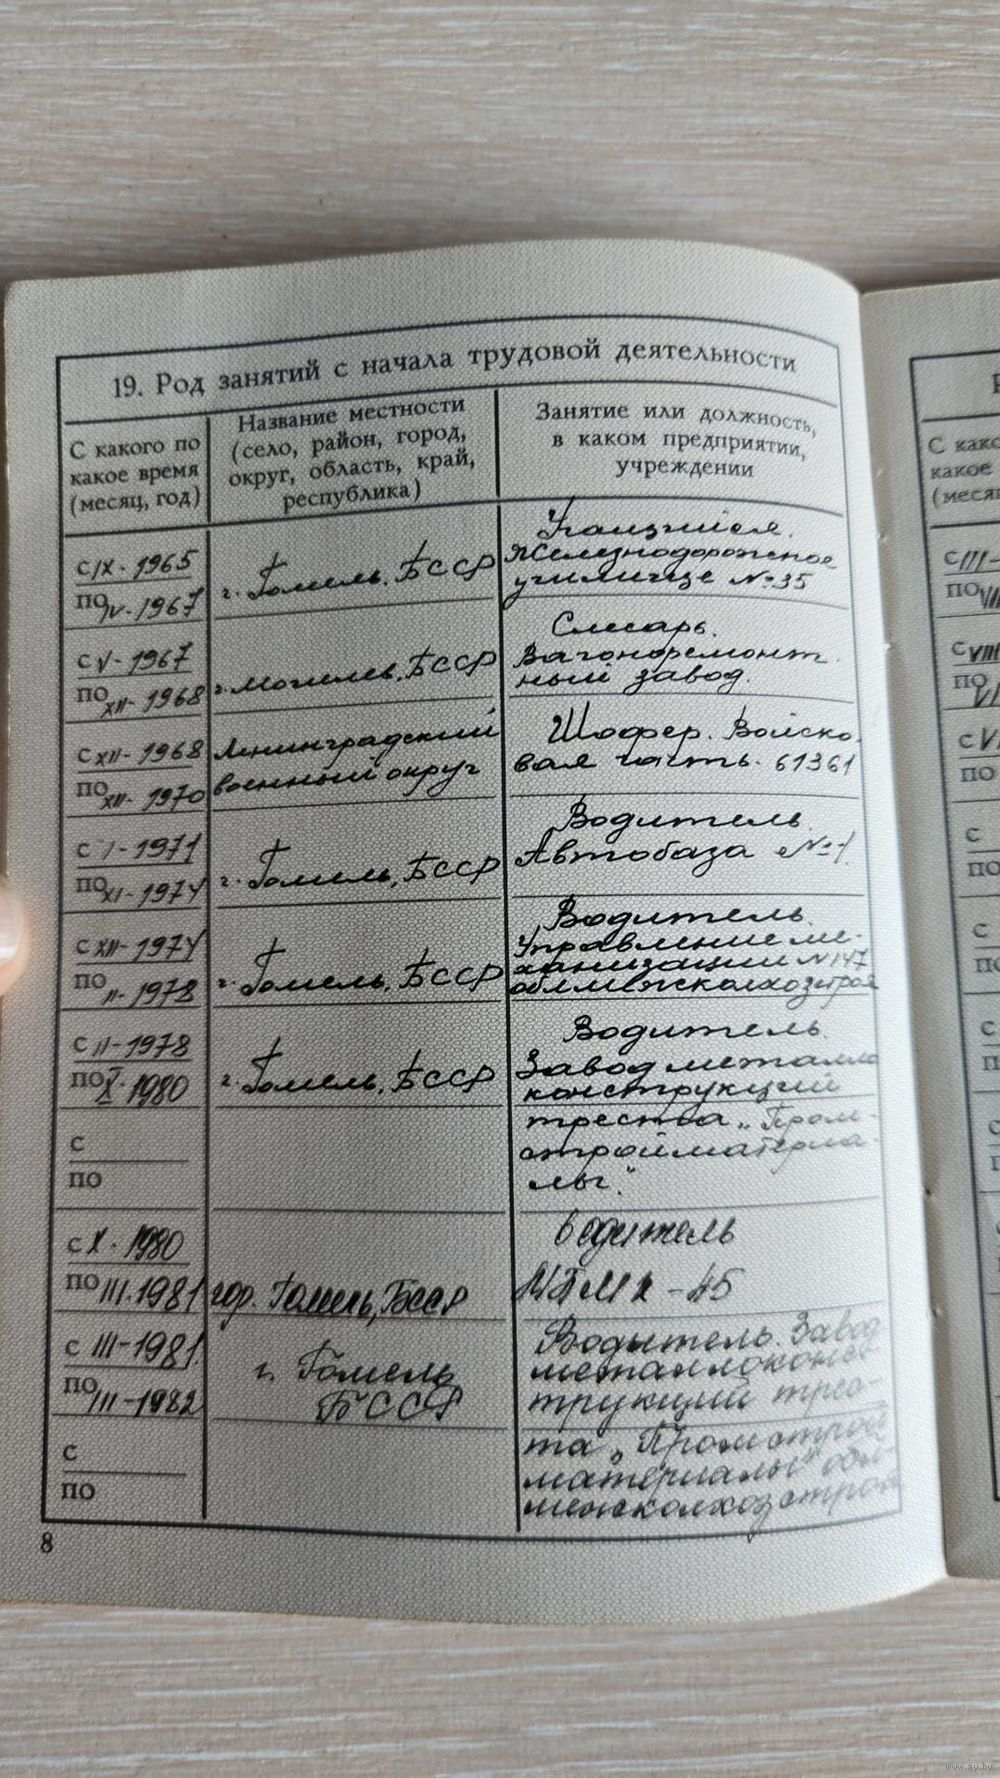 19. Род занятий с начала трудовой деятельности
С какого по
какое время
(месяц, год)
Название местности
(село, район, город,
округ, область, край,
республика)
Занятие или должность,
в каком предприятии,
учреждении
с IX - 1965
по IV - 1967
г. Гомель, БССР
Учащийся.
Железнодорожное
училище № 35
с V - 1967
по XII - 1968
г. Могилев, БССР
Слесарь.
Вагоноремонт-
ный завод.
с XII - 1968
по XII - 1970
Ленинградский
военный округ
Шофер. Войско-
вая часть. 61361
с I - 1971
по XI - 1974
г. Гомель, БССР
Водитель
Автобаза № 1
с XII - 1974
по II - 1978
г. Гомель, БССР
Водитель.
Управление ме-
ханизации № 147
облмежколхозстроя
с II - 1978
по X - 1980
г. Гомель, БССР
Водитель.
Завод металло
конструкций
с
по
треста „Пром-
стройматериа-
лы".
с X - 1980
по III. 1981
гор. Гомель, БССР
водитель
- 45
с III - 1981.
по III - 1982
г. Гомель
БССР
Водитель. Завод
металлоконс-
трукций трес-
с
по
та „Промстрой
материалы" обл-
межколхозстроя
8
С како
какое
(меся
с III -
по VIII
с VIII
по
с V
по
с
по
с
по
с
с
www.ay.by